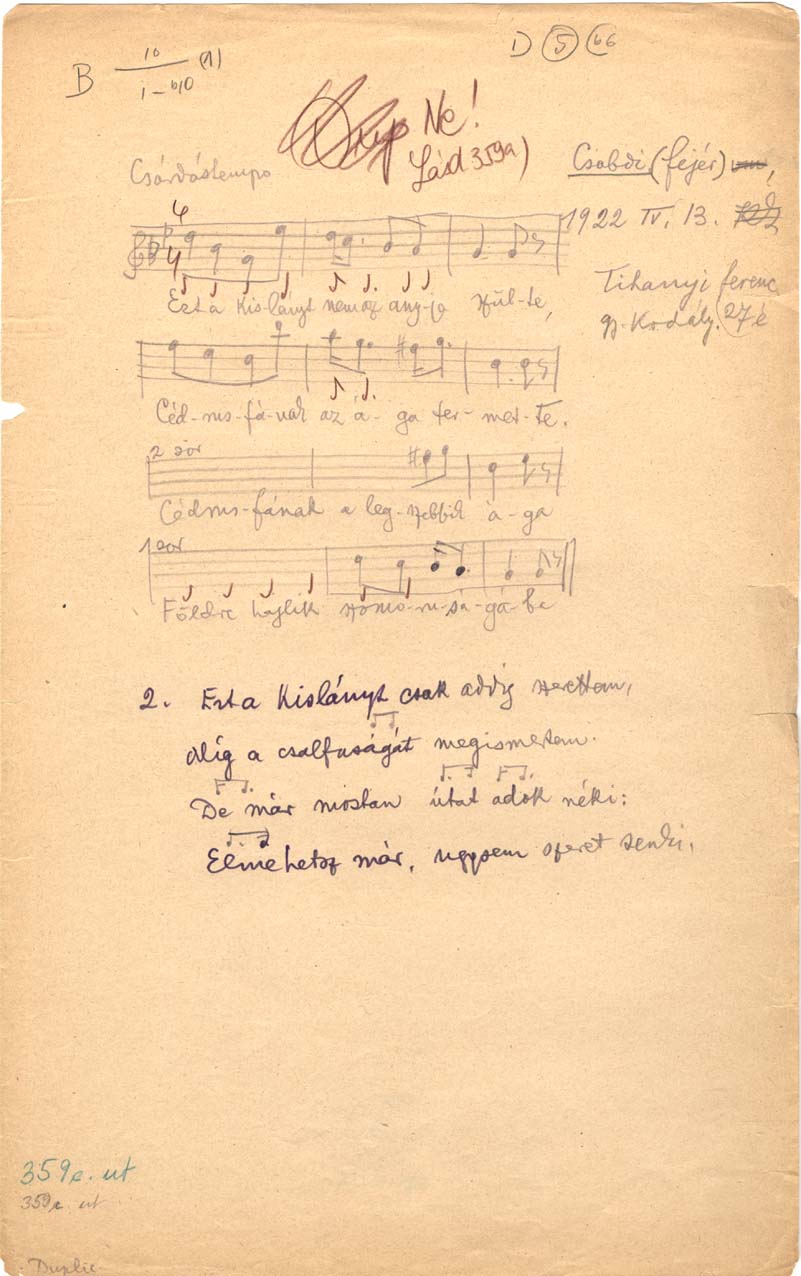 B 10 (1)
D 5 66
Ne!
Lásd 359a)
Csárdástempo
Csabdi (Fejér)
1922 IV. 13.
Tihanyi Ferenc
gy. Kodály. 27 é
4
4
Ezt a kis-lányt nem az any-ja szül-te,
Céd-rus-fá-nak az á-ga ter-met-te.
2 sor
Cédrus-fának a leg-szebbik á-ga
1 sor
Földre hajlik szomo-rú-sá-gá-ba
2. Ezt a kislányt csak addig szerettem,
Míg a csalfaságát megismertem.
De már mostan útat adok néki:
Elmehetsz már, ugysem szeret senki.
359c. ut
359c. ut
Duplic.